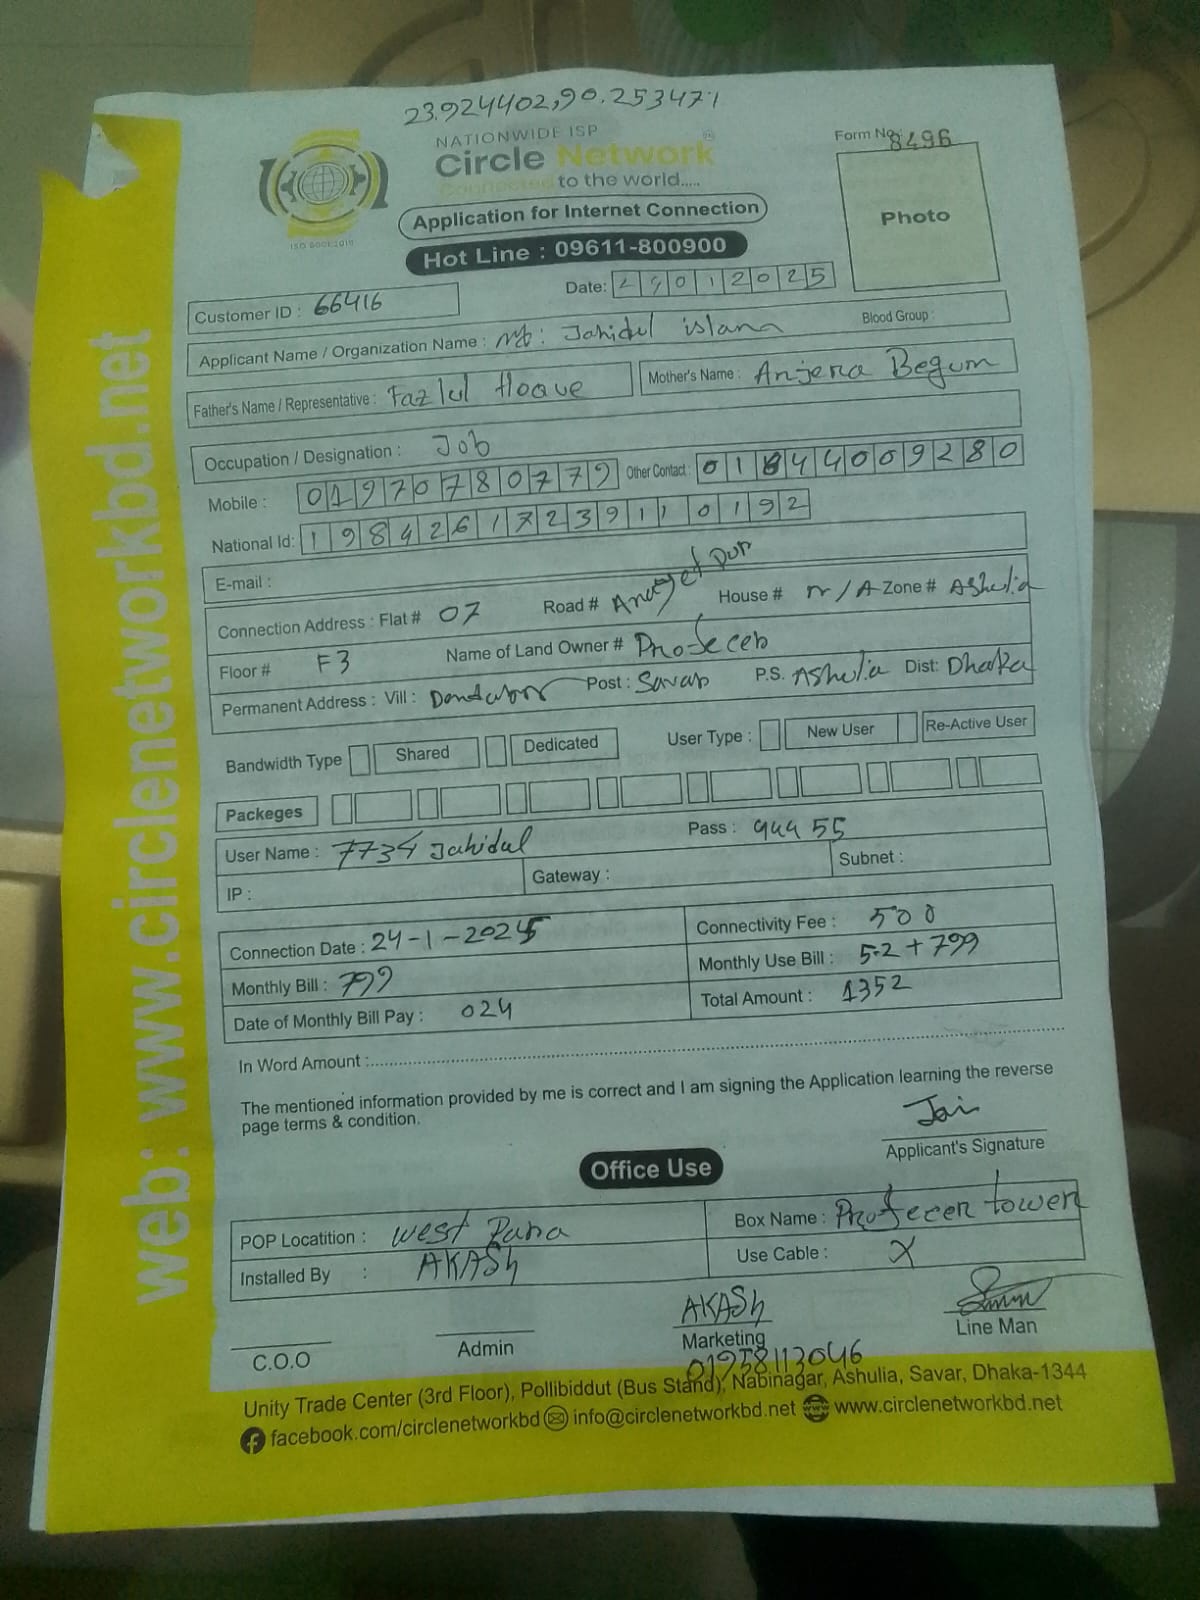 23.924402,90.253471
NATIONWIDE ISP
Circle Network
Connected to the world.....
ISO 9001:2015
Application for Internet Connection
Hot Line : 09611-800900
Form No: 8496
Photo
Date: 24012025
Customer ID : 66416
Applicant Name / Organization Name : Md: Jahidul islam Blood Group :
Father's Name / Representative : Fazlul Hoque Mother's Name : Anjera Begum
Occupation / Designation : Job
Mobile : 01970780779 Other Contact : 01844009280
National Id: 19842617239110192
E-mail :
Connection Address : Flat # 07 Road # House # N/A Zone # Ashulia
Floor # F3 Name of Land Owner #
Permanent Address : Vill : Post : Savar P.S. Ashulia Dist: Dhaka
Bandwidth Type Shared Dedicated User Type : New User Re-Active User
Packeges
User Name : 7734 Jahidul Pass : 94455
IP : Gateway : Subnet :
Connection Date : 24-1-2025 Connectivity Fee : 500
Monthly Bill : 799 Monthly Use Bill : 52 + 799
Date of Monthly Bill Pay : 024 Total Amount : 1352
In Word Amount :
The mentioned information provided by me is correct and I am signing the Application learning the reverse
page terms & condition.
Applicant's Signature
Office Use
POP Locatition : West Para Box Name : Profecer tower
Installed By : AKASh Use Cable : X
C.O.O Admin AKASh Marketing Line Man
01958113046
Unity Trade Center (3rd Floor), Pollibiddut (Bus Stand), Nabinagar, Ashulia, Savar, Dhaka-1344
facebook.com/circlenetworkbd info@circlenetworkbd.net www.circlenetworkbd.net
web: www.circlenetworkbd.net